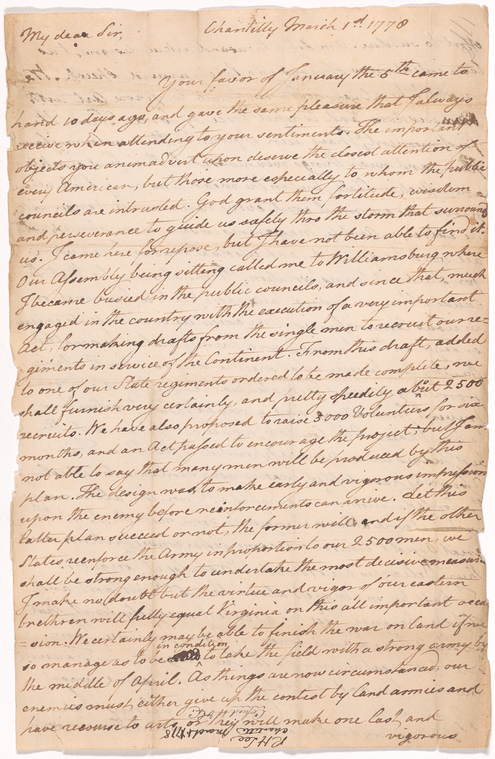 My dear Sir, Chantilly March 1st. 1778
Your favor of January the 5th came to
hand 10 days ago, and gave the same pleasure that I always
receive when attending to your sentiments. The important
objects you animadvert upon deserve the closest attention of
every American, but those more especially to whom the public
councils are intrusted. God grant them fortitude, wisdom
and perseverance to guide us safely thro the storm that surrounds
us. I came here for repose, but I have not been able to find it.
Our Assembly being sitting called me to Williamsburg where
I became busied in the public councils, and since that, much
engaged in the country with the execution of a very important
Act, for making drafts from the single men to recruit our re-
giments in service of the Continent. From this draft, added
to one of our State regiments ordered to be made complete, we
shall furnish very certainly, and pretty speedily abt 2500
recruits. We have also proposed to raise 5000 Volunteers for six
months, and an Act passed to encourage the project; but I am
not able to say that many men will be produced by this
plan. The design was, to make early and vigorous impression
upon the enemy before reinforcements can arrive. Let this
latter plan succeed or not, the former will, and if the other
States reenforce the Army in proportion to our 2500 men, we
shall be strong enough to undertake the most decisive measures
I make no doubt but the virtue and vigor of our eastern
brethren will fully equal Virginia on this all important occa
=sion. We certainly may be able to finish the war on land if we
so manage as to be in condition to take the field with a strong army by
the middle of April. As things are now circumstanced, our
enemies must either give up the contest by land armies and
have recourse to arts, or they will make one last and
vigorous
R H Lee
Chantilly
March 1 1778